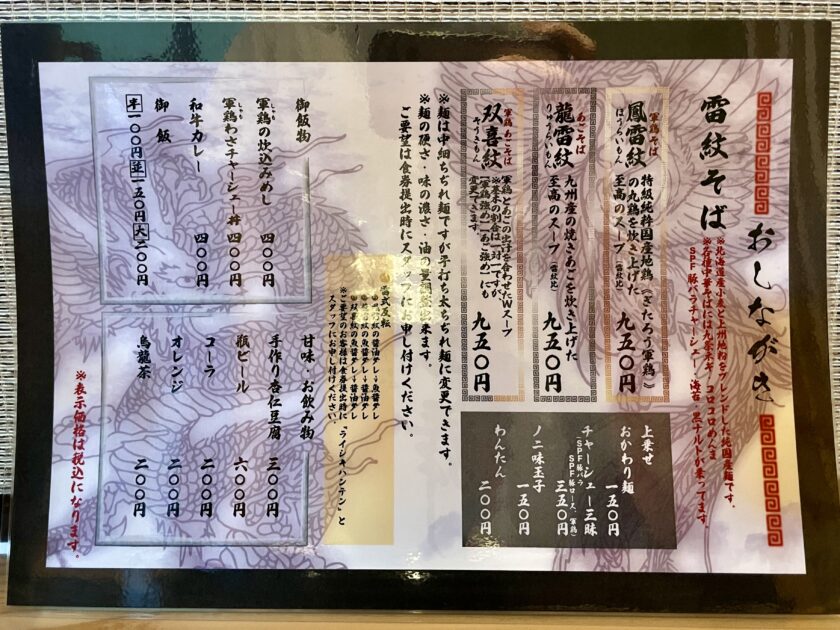 おしながき
雷紋そば
※北海道産小麦と上州地粉をブレンドした純国産麺です。
※各種中華そばには九条ネギ、コロコロめんま
SPF豚バラチャーシュー、海苔、黒ナルトが乗ってます。
軍鶏そば
鳳雷紋
ほうらいもん
特級純粋国産地鶏《ぎたろう軍鶏》
の丸鶏を炊き上げた
至高のスープ
九五〇円
あごそば
龍雷紋
りゅうらいもん
九州産の焼きあごを炊き上げた
至高のスープ
九五〇円
軍鶏あごそば
双喜紋
そうきもん
軍鶏とあごの出汁を合わせたWスープ
※基本の割合は一対一ですが、
【軍鶏強め】【あご強め】にも
変更できます。
九五〇円
上乗せ
おかわり麺 一五〇円
チャーシュー三昧 三五〇円
(SPF豚バラ
SPF豚ロース、軍鶏)
ノニ味玉子 一五〇円
わんたん 二〇〇円
※麺は中細ちぢれ麺ですが平打ち太ちぢれ麺に変更できます。
※麺の硬さ・味の濃さ・油の量調整出来ます。
ご要望は食券提出時にスタッフにお申し付けください。
※ご要望のお客様は食券提出時に『ライシキハンテン』と
スタッフにお申し付けください。
御飯物
軍鶏の炊込みめし 四〇〇円
しゃも
軍鶏わさチャーシュー丼 四〇〇円
しゃも
和牛カレー 四〇〇円
御飯
半一〇〇円 並一五〇円 大二〇〇円
甘味・お飲み物
手作り杏仁豆腐 三〇〇円
瓶ビール 六〇〇円
コーラ 二〇〇円
オレンジ 二〇〇円
烏龍茶 二〇〇円
※表示価格は税込になります。